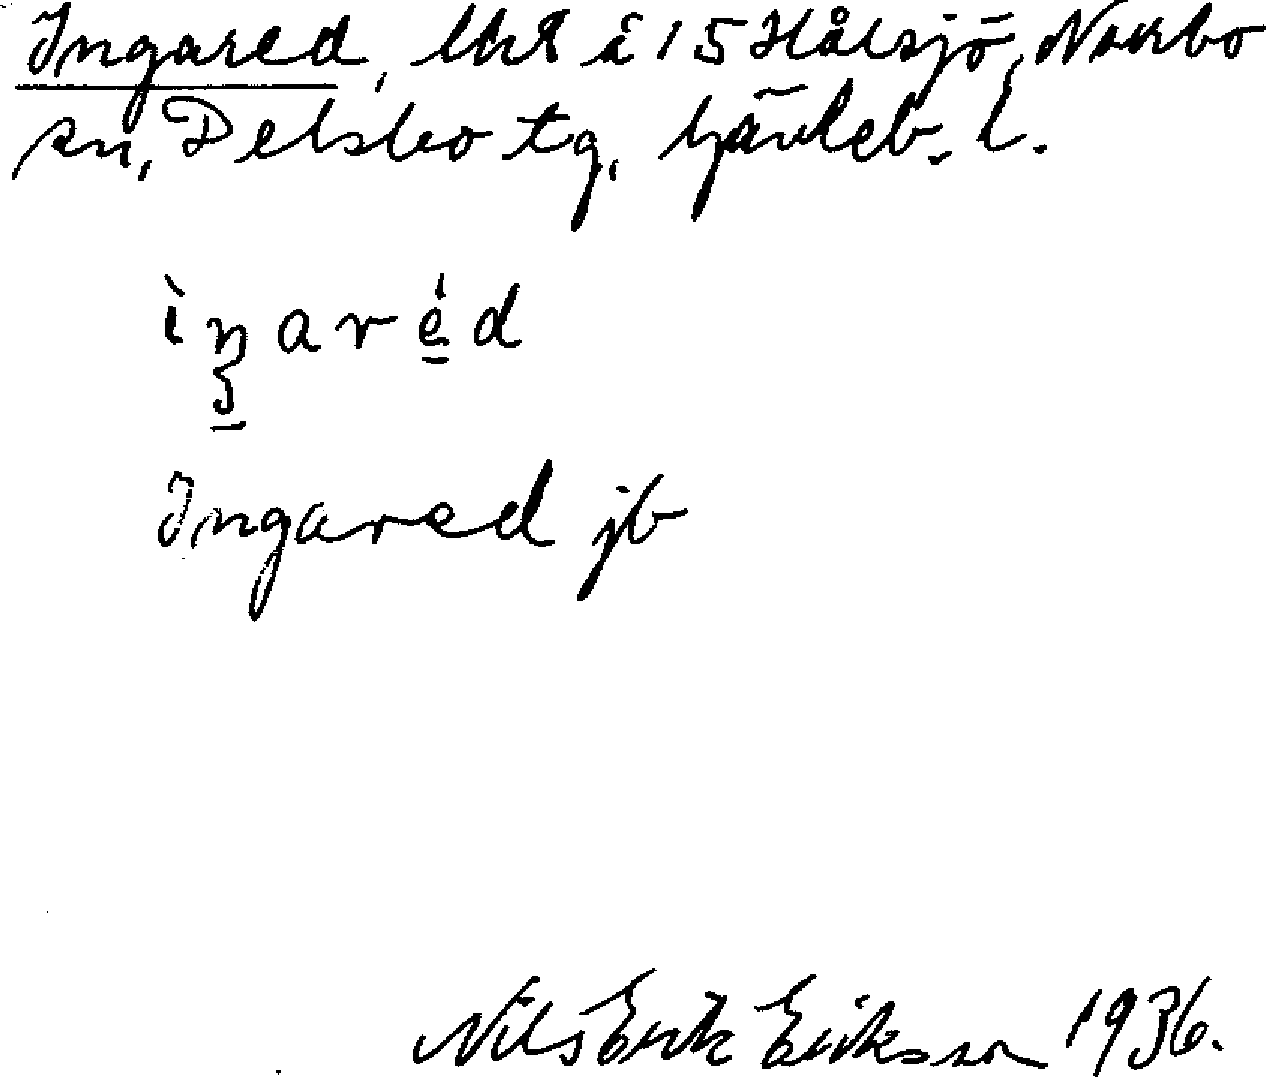 Ingared, lht å 15 Hålsjö, Norrbo
sn, Delsbo tg, Gävleb. l.
ìŋaréd
Ingared jb
Nils Erik Eriksson 1936.